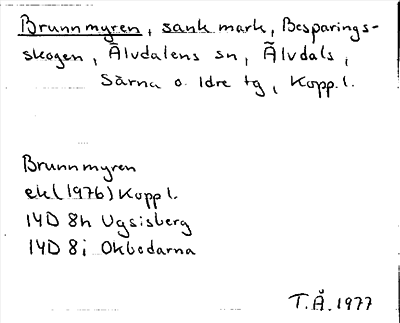 Brunnmyren, sank mark, Besparings-
skogen, Älvdalens sn, Älvdals,
Särna o. Idre tg, Kopp.l.
Brunnmyren
ek(1976) Kopp l.
14D 8h Ugsisberg
14D 8i Okbodarna
T.Å. 1977